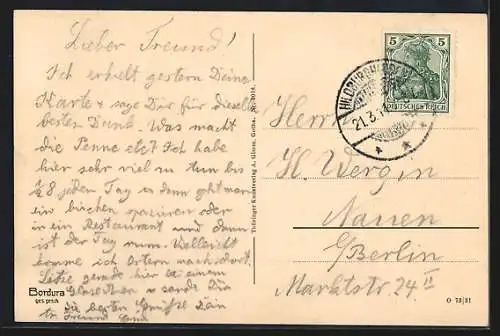 Lieber Freund!
Ich erhielt gestern Deine
Karte & sage Dir für dieselbe
besten Dank. Was macht
die Penne etc? Ich habe
hier sehr viel zu tun bis
1/2 8 jeden Tag u dann geht man
ein bischen spazieren oder
in ein Restaurant und dann
ist der Tag rum. Vielleicht
komme ich Ostern mach dort.
gerade hier bei einem
Gläschen u sende Dir
die besten Grüße Dein
Freund
Bordura
ges. gesch.
Thüringer Kunstverlag A. Gotha. Nr.
5 5
DEUTSCHES REICH
HILDBURGHAUSEN
21.3.
Herrn
H. Wergin
Nauen
b/Berlin
Marktstr. 24 II
O 13|31